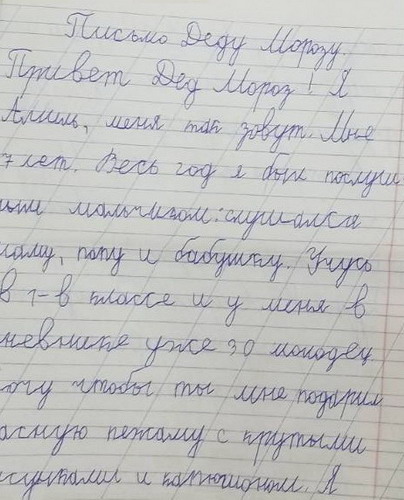 Письмо Деду Морозу
Привет Дед Мороз! Я
Алиль, меня так зовут. Мне
7 лет. Весь год я был послуш
ным мальчизом: слушался
маму, папу и бабушку. Учусь
в 1-в классе и у меня в
невнике уже 30 молодец
очу чтобы ты мне подарил
асную пежаму с крутыми
исунками и капюшоном. Я